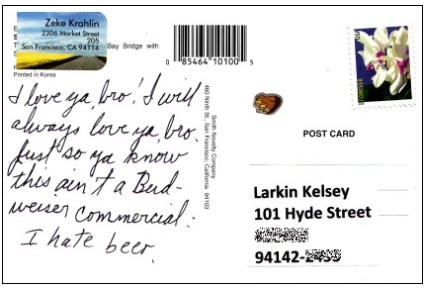 Zeke Krahlin
2306 Market Street
205
San Francisco, CA 94114
Bay Bridge with
Printed in Korea
0 85464 10100 5
Smith Novelty Company
460 Ninth St., San Francisco, California 94103
I love ya, bro! I will
always love ya, bro.
Just so ya know
this ain't a Bud-
weiser commercial:
I hate beer.
FOREVER
POST CARD
Larkin Kelsey
101 Hyde Street
94142-